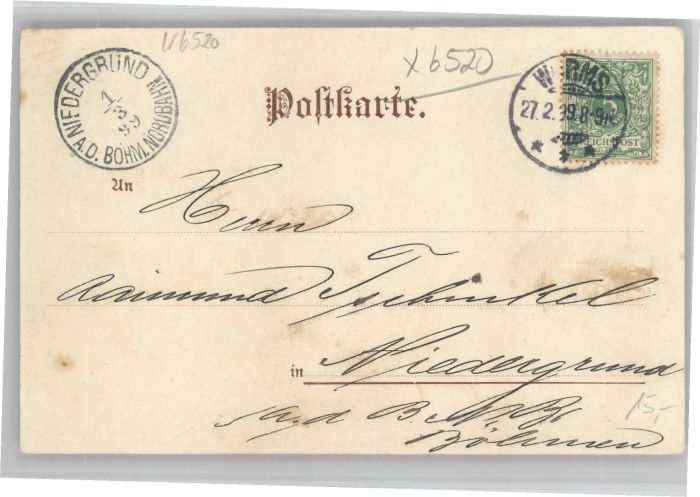 V6520
X 6520
NIEDERGRUND
A.D. BÖHM. NORDBAHN
1/3
99
Postkarte.
WORMS
27.2.99.8-9N.
REICHSPOST
An
Herrn
Raimund Tschinkel
in Niedergrund
a. d B. N. B.
Böhmen
15,-